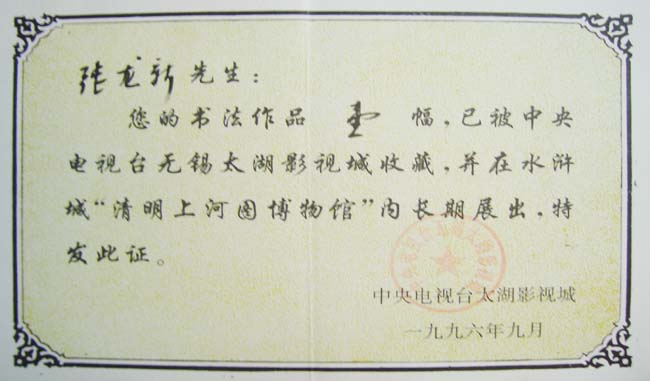 张龙新先生：
您的书法作品 壹 幅，已被中央
电视台无锡太湖影视城收藏，并在水浒
城“清明上河图博物馆”内长期展出，特
发此证。
中央电视台太湖影视城
一九九六年九月